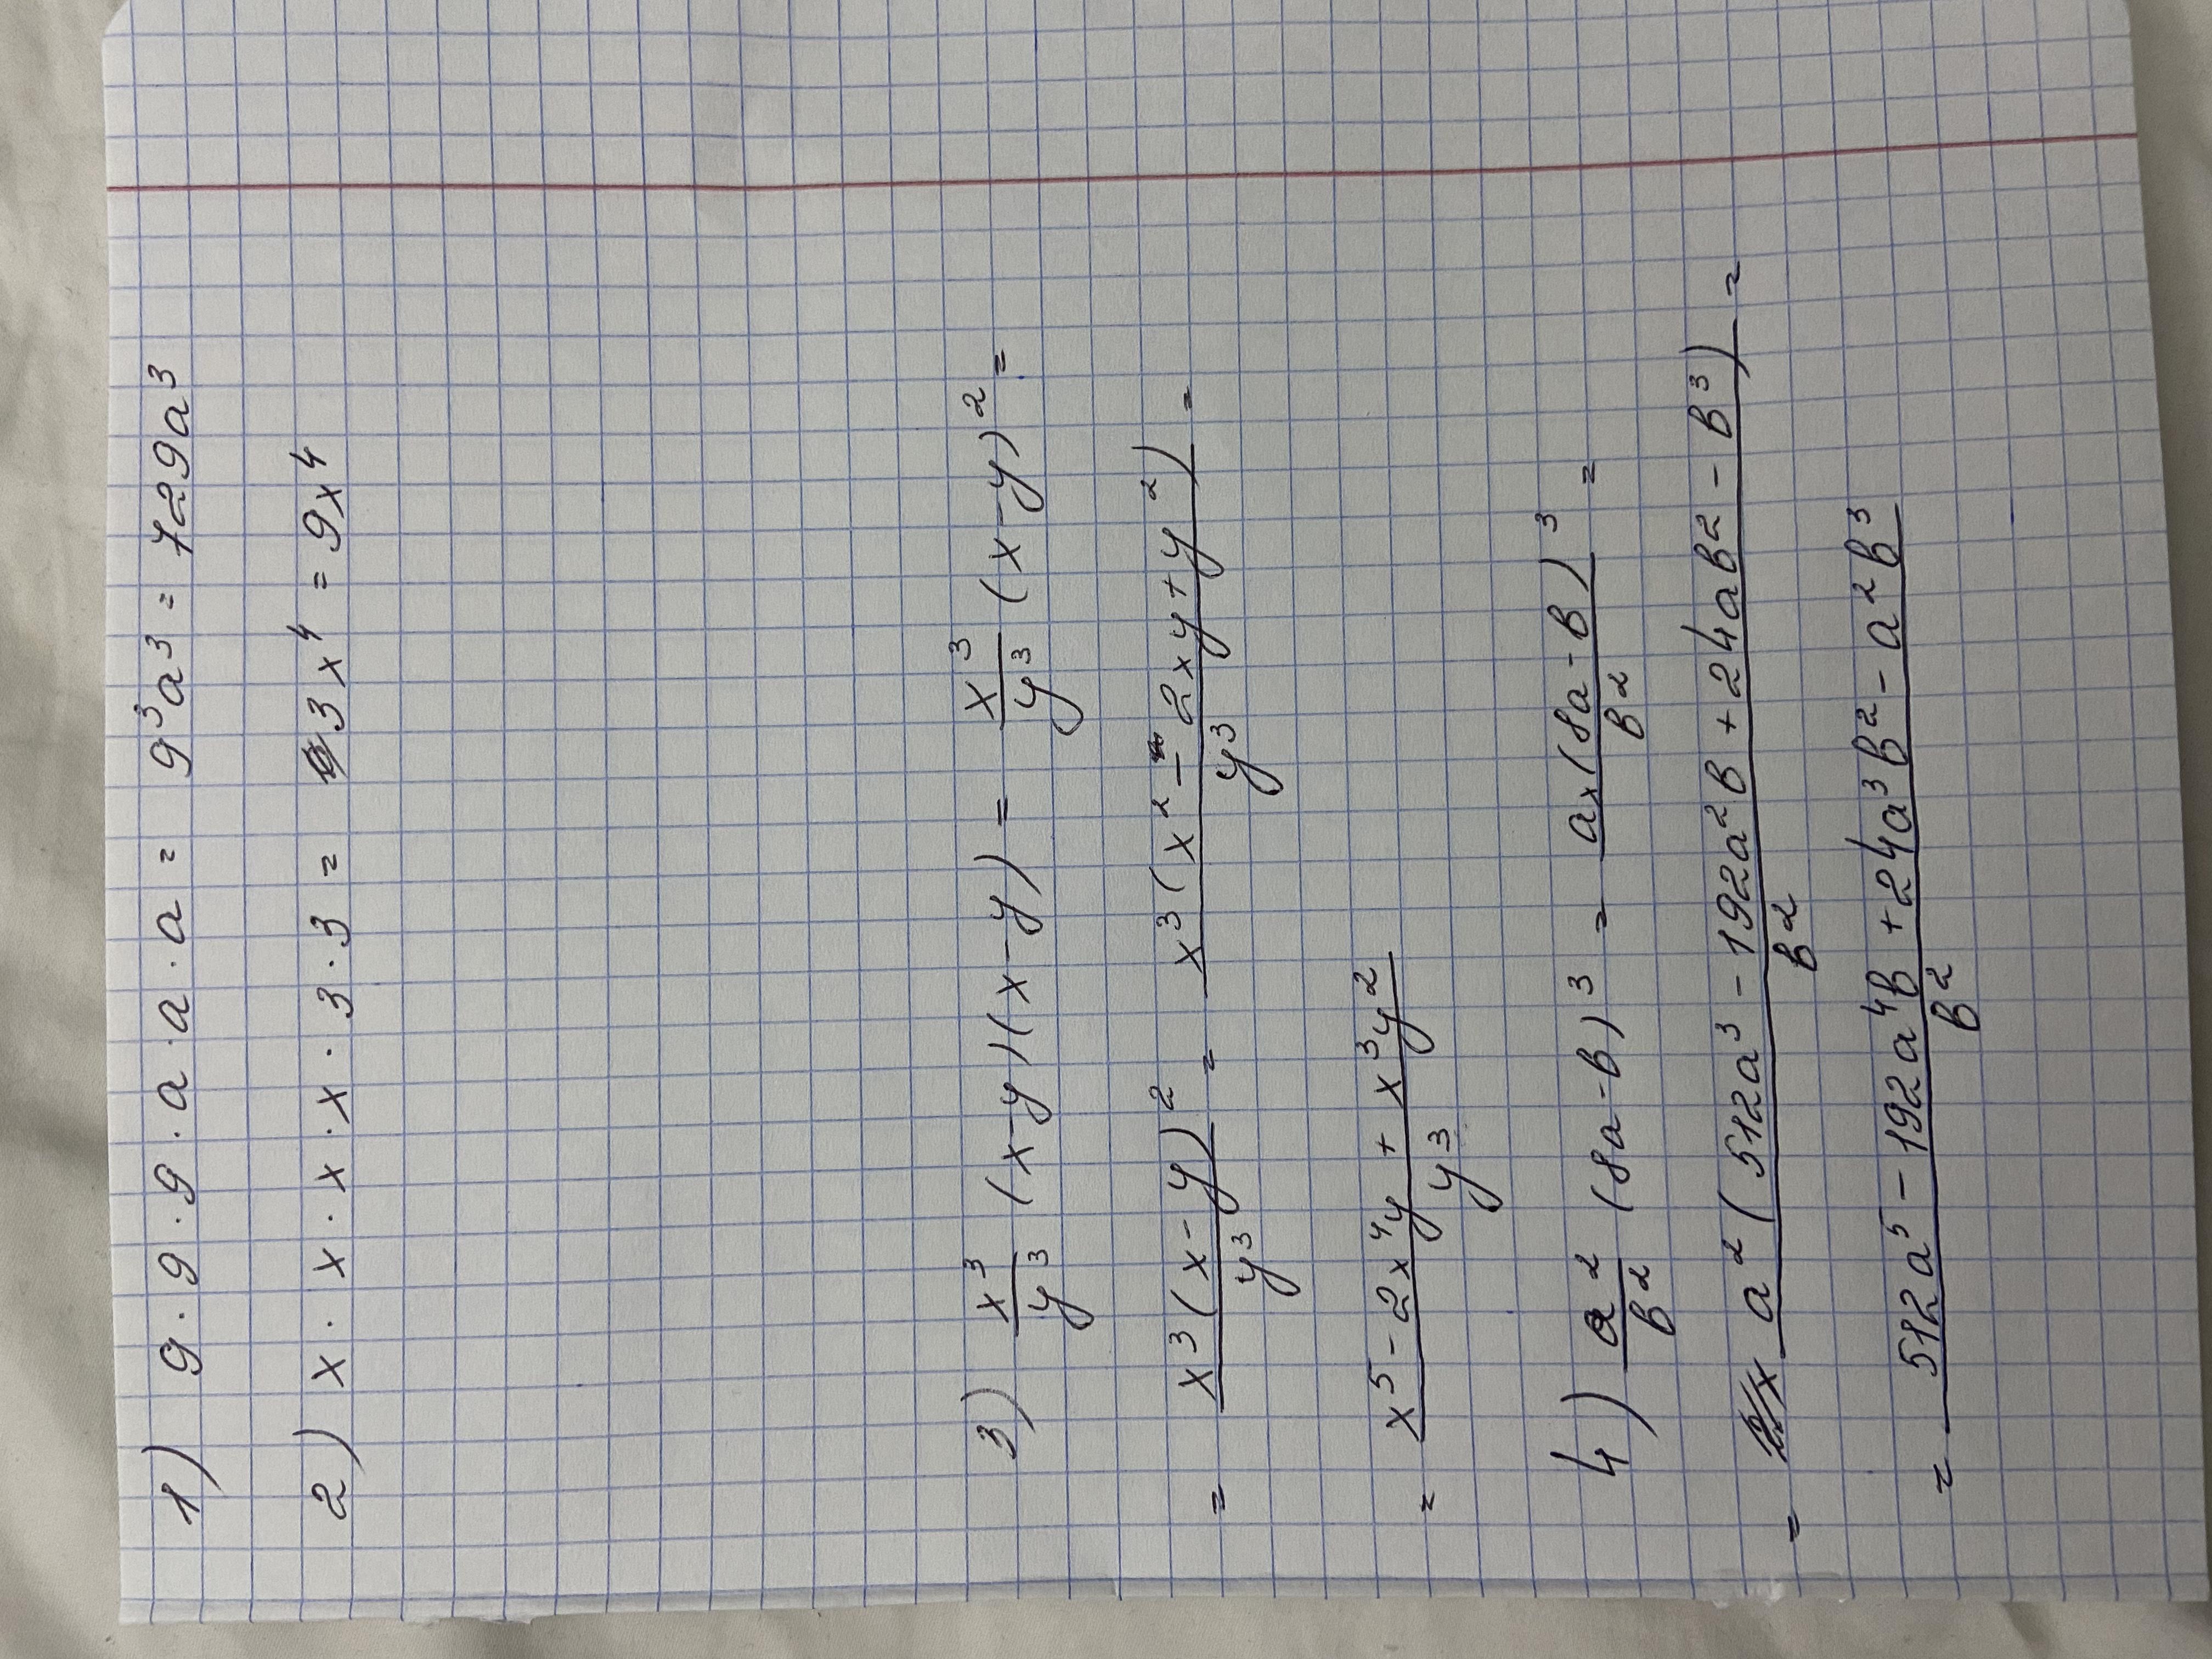 1) 9 · 9 · 9 · a · a · a = 9³a³ = 729a³
2) x · x · x · x · 3 · 3 = 3x⁴ = 9x⁴
3) x³/y³ (x-y)(x-y) = x³/y³ (x-y)² =
= x³(x-y)²/y³ = x³(x² - 2xy + y²)/y³ =
= x⁵ - 2x⁴y + x³y²/y³
4) a²/в² (8a-в)³ = a²(8a-в)³/в² =
= a²(512a³ - 192a²в + 24aв² - в³)/в² =
= 512a⁵ - 192a⁴в + 24a³в² - a²в³/в²